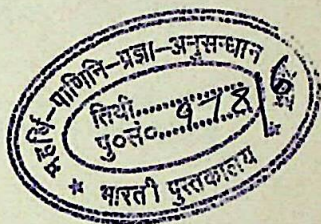 महर्षि-पाणिनि-प्रज्ञा-अनुसन्धान
तिथी..................
पु०सं०.................
978/6
भारती पुस्तकालय